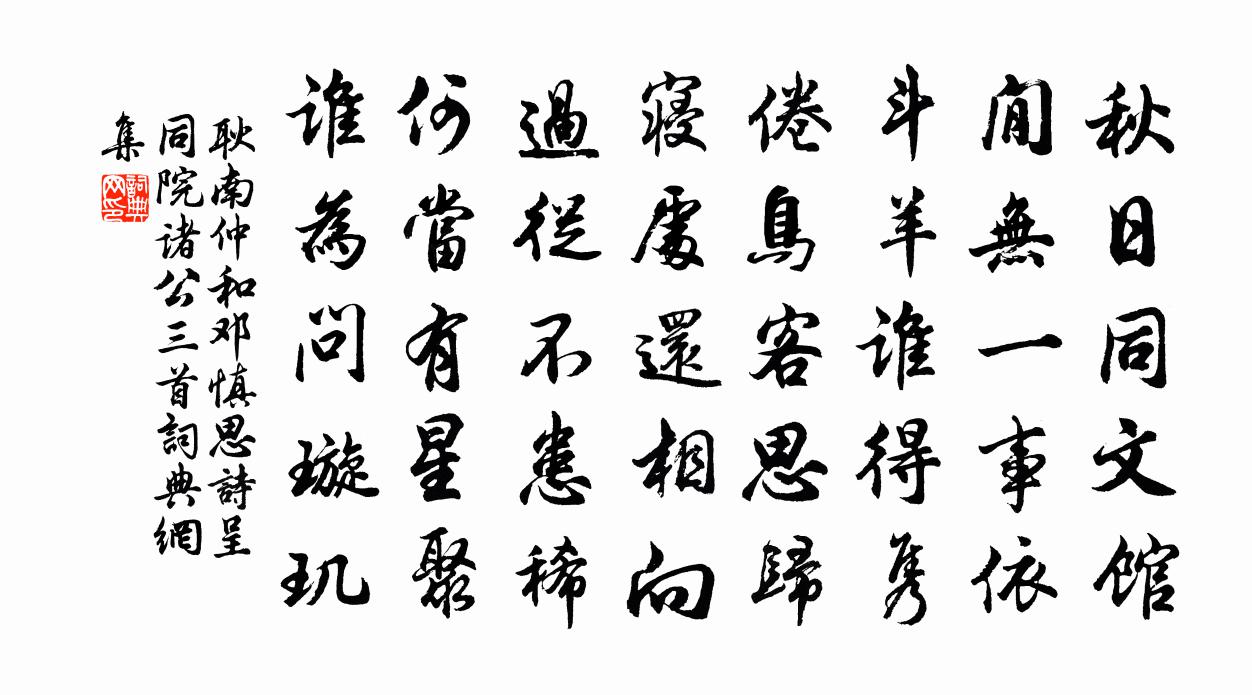 秋日同文館
閒無一事依
斗羊誰得隽
倦鳥客思歸
寢處還相向
過從不患稀
何當有星聚
誰為問璇玑
耿南仲和邓慎思詩呈
同院诸公三首詞典網
集
詞典網印